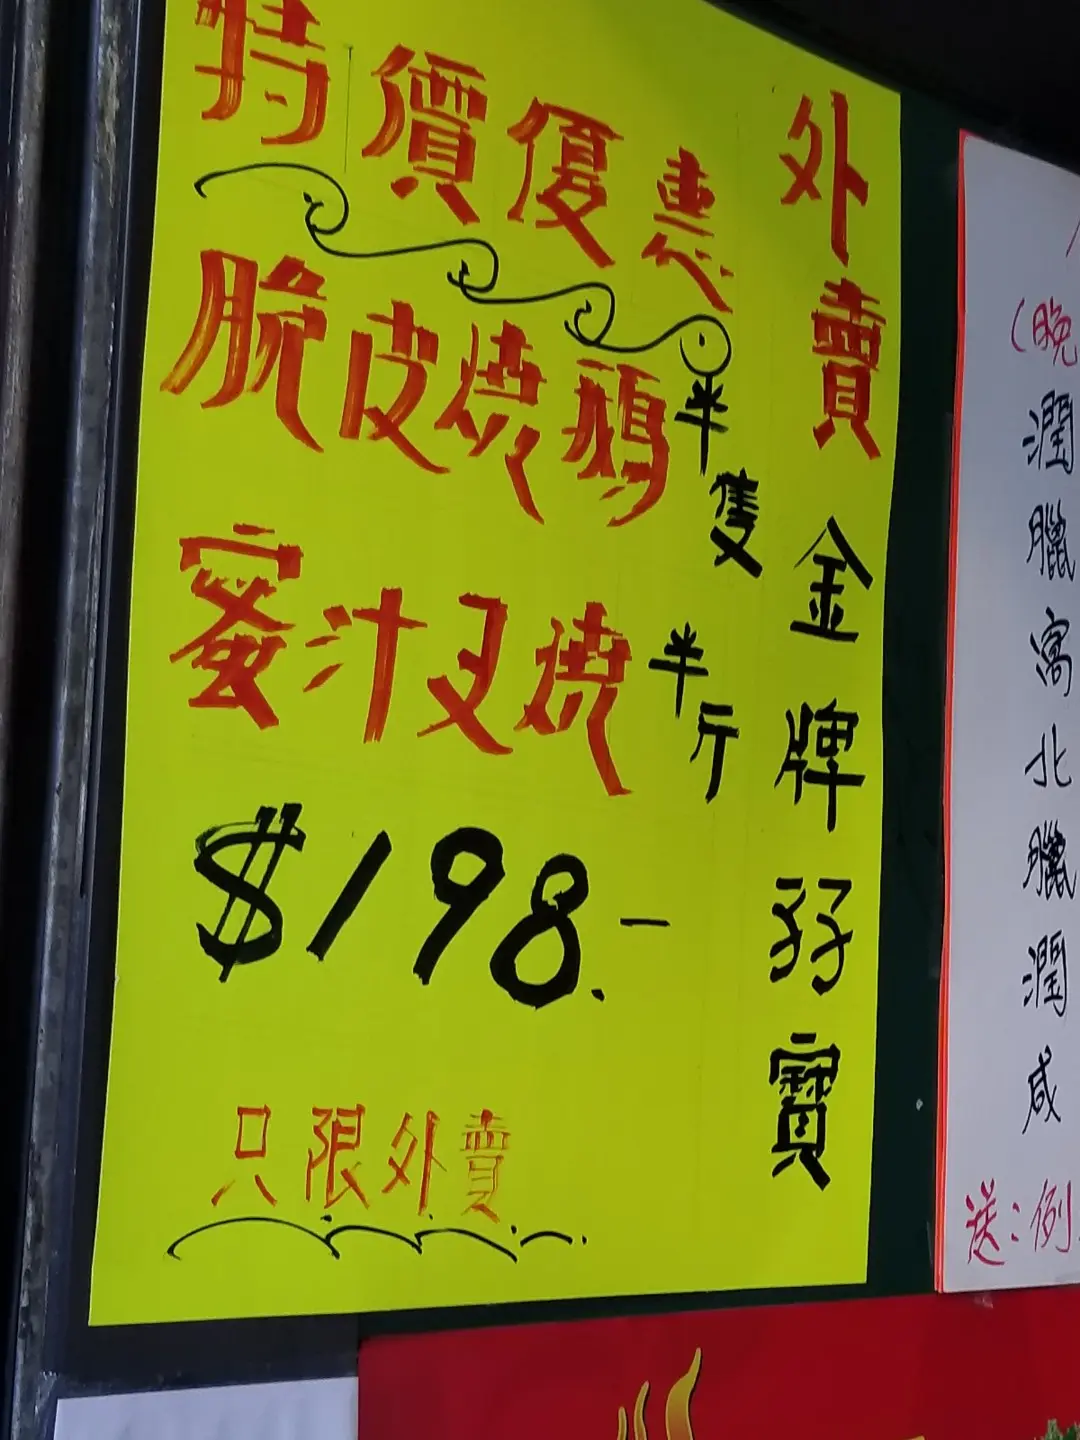 外賣金牌孖寶
特價優惠
脆皮燒鵝半隻
蜜汁叉燒半斤
$198.-
只限外賣
(晚
潤
臘
窩
北
臘
潤
咸
送:例